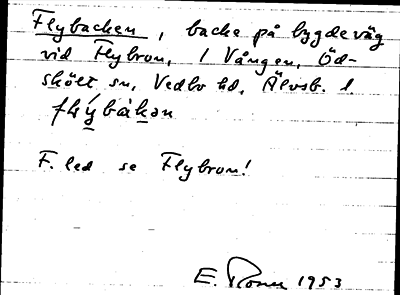 Flybacken, backe på bygdeväg
vid Flybron, i Vången, Öd-
skölt sn, Vedbo hd, Älvsb. l.
flýbàkən
F. led se Flybron!
E. 1953